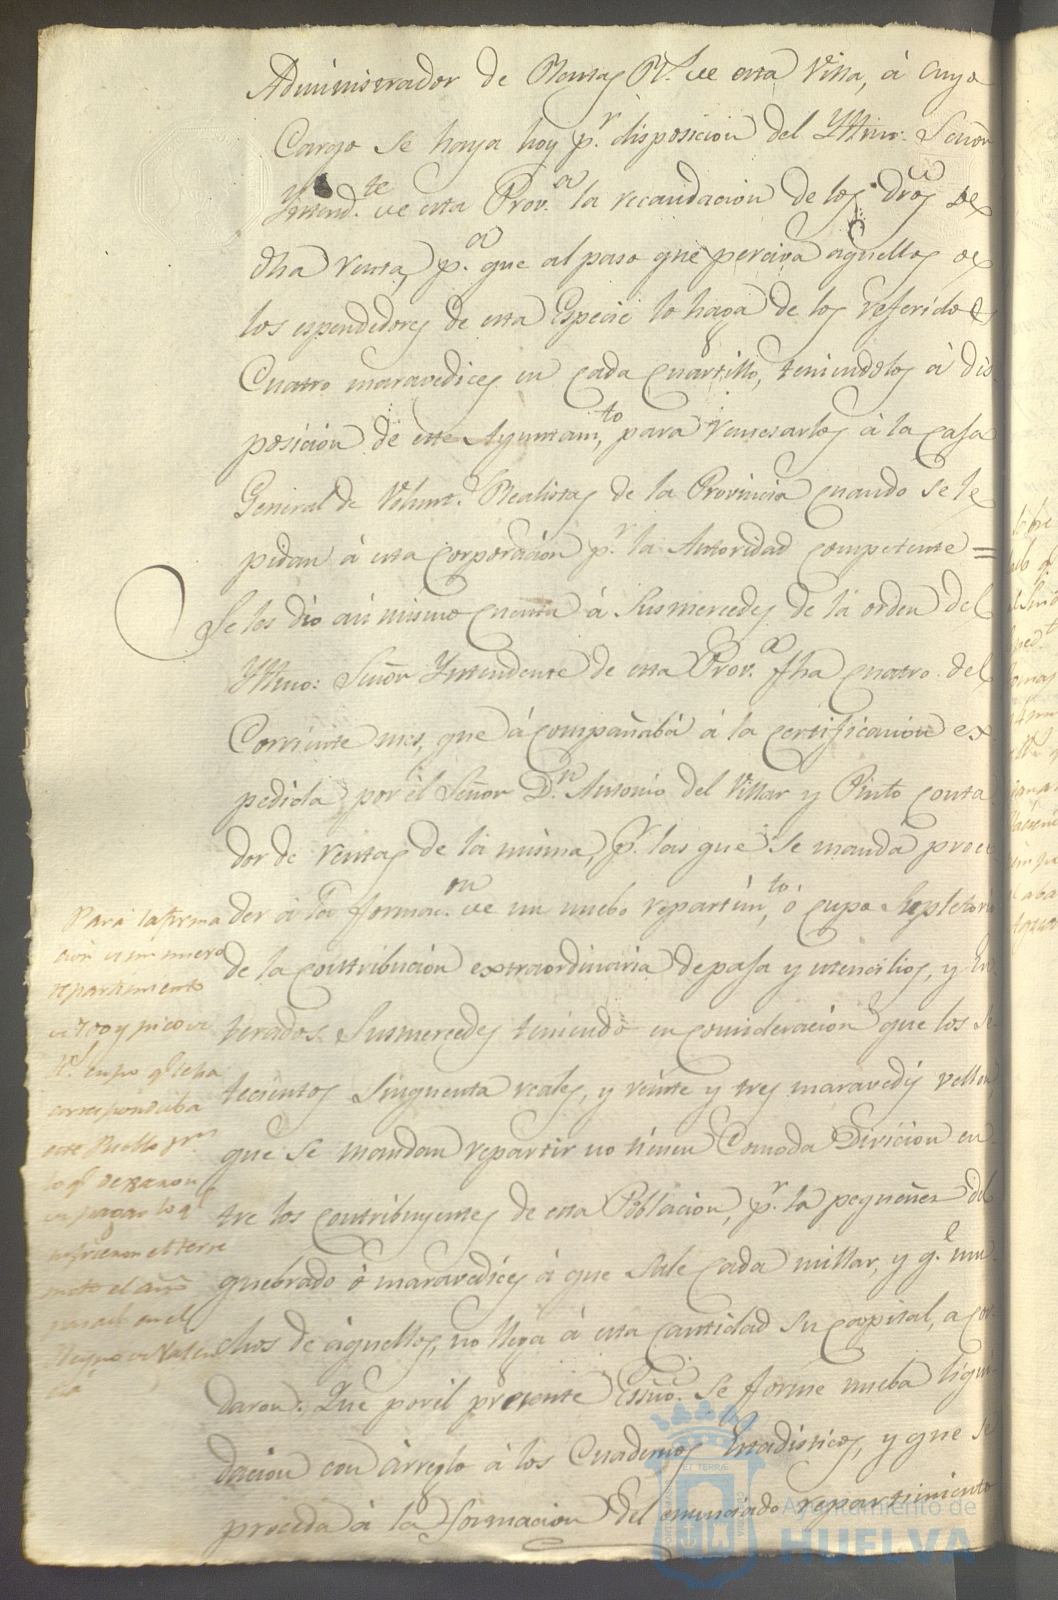 Administrador de Rentas Rs. de esta Villa, á cuyo
Cargo se haya hoy pr. disposicion del Yttmo. Señor
Yntend.te de esta Prov.a la recaudacion de los dros de
dha renta, p.a que al paso que perciva aquellos de
los espendedores de esta Especie lo haga de los referidos
Cuatro maravedices en cada cuartillo, teniendolos á dis-
posicion de este Ayuntam.to, para remesarlos á la Casa
General de Volunt.s Realistas de la Provincia cuando se le
pidan á esta corporacion pr. la Autoridad competente =
Se les dio asi mismo cuenta á Susmercedes de la orden del
Yttmo: Señor Yntendente de esta Prov.a fha cuatro del
Corriente mes, que ácompañabá á la certificacion ex
pedida por el Señor D.n Antonio del Villar y Pinto conta
dor de rentas de la misma, pr. las que se manda proce
der á la formac.on de un nuebo repartim.to, ó cupo Supletorio
de la contribucion extraordinaria de paja y utencilios, y en
terados Susmercedes teniendo en consideracion que los se
tecientos Sinquenta reales, y veinte y tres maravedis vellon
que se mandan repartir no tienen Comoda Divicion en
tre los contribuyentes de esta Poblacion, pr. la pequeñes del
quebrado ó maravedices á que Sale cada millar, y q.e mu
chos de aquellos, no llega á esta cantidad Su capital, acor
daron: Que por el presente Essno. Se forme nueba liqui
dacion con árreglo á los Cuadernos Estadisticos, y que se
proceda á la formacion del enunciado repartimiento
Para la forma
cion de un nuevo
repartimiento
de 700 y pico de
rs. cupo q.e le ha
correspondido á
este Pueblo pr.
lo q.e dexaron
de pagar los q.e
sufrieron el terre
moto el año
pasado en el
Reyno de Valen
cia
Ayuntamiento de
HUELVA